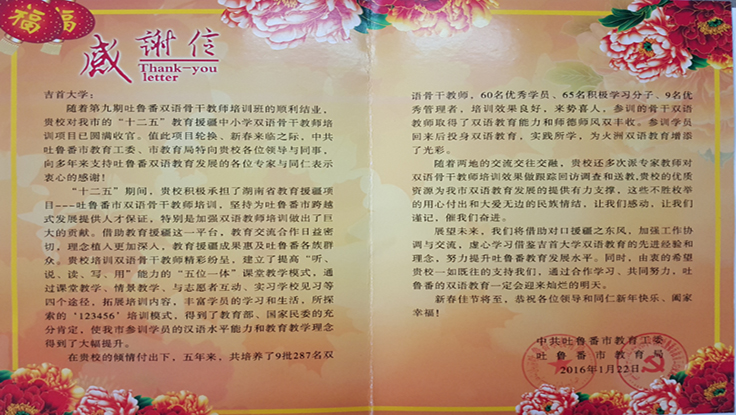 福 福
感謝信
Thank-you
letter
吉首大学:
随着第九期吐鲁番双语骨干教师培训班的顺利结业,
贵校对我市的“十二五”教育援疆中小学双语骨干教师培
训项目已圆满收官。值此项目轮换、新春来临之际,中共
吐鲁番市教育工委、市教育局特向贵校各位领导与同事,
向多年来支持吐鲁番双语教育发展的各位专家与同仁表示
衷心的感谢!
“十二五”期间,贵校积极承担了湖南省教育援疆项
目---吐鲁番市双语骨干教师培训,坚持为吐鲁番市跨越
式发展提供人才保证,特别是加强双语教师培训做出了巨
大的贡献。借助教育援疆这一平台,教育交流合作日益密
切,理念植入更加深人,教育援疆成果惠及吐鲁番各族群
众。贵校培训双语骨干教师精彩纷呈,建立了提高“听、
说、读、写、用”能力的“五位一体”课堂教学模式,通
过课堂教学、情景教学、与志愿者互动、实习学校见习等
四个途径,拓展培训内容,丰富学员的学习和生活,所探
索的‘123456’培训模式,得到了教育部、国家民委的充
分肯定,使我市参训学员的汉语水平能力和教育教学理念
得到了大幅提升。
在贵校的倾情付出下,五年来,共培养了9批287名双
语骨干教师,60名优秀学员、65名积极学习分子、9名优
秀管理者,培训效果良好,来势喜人,参训的骨干双语
教师取得了双语教育能力和师德师风双丰收。参训学员
回来后投身双语教育,实践所学,为火洲双语教育增添
了光彩。
随着两地的交流交往交融,贵校还多次派专家教师对
双语骨干教师培训效果做跟踪回访调查和送教,贵校的优质
资源为我市双语教育发展的提供有力支撑,这些不胜枚举
的用心付出和大爱无边的民族情结,让我们感动,让我们
谨记,催我们奋进。
展望未来,我们将借助对口援疆之东风,加强工作协
调与交流,虚心学习借鉴吉首大学双语教育的先进经验和
理念,努力提升吐鲁番教育发展水平。同时,由衷的希望
贵校一如既往的支持我们,通过合作学习、共同努力,吐
鲁番的双语教育一定会迎来灿烂的明天。
新春佳节将至,恭祝各位领导和同仁新年快乐、阖家
幸福!
中共吐鲁番市教育工委
吐鲁番市教育局
2016年1月22日